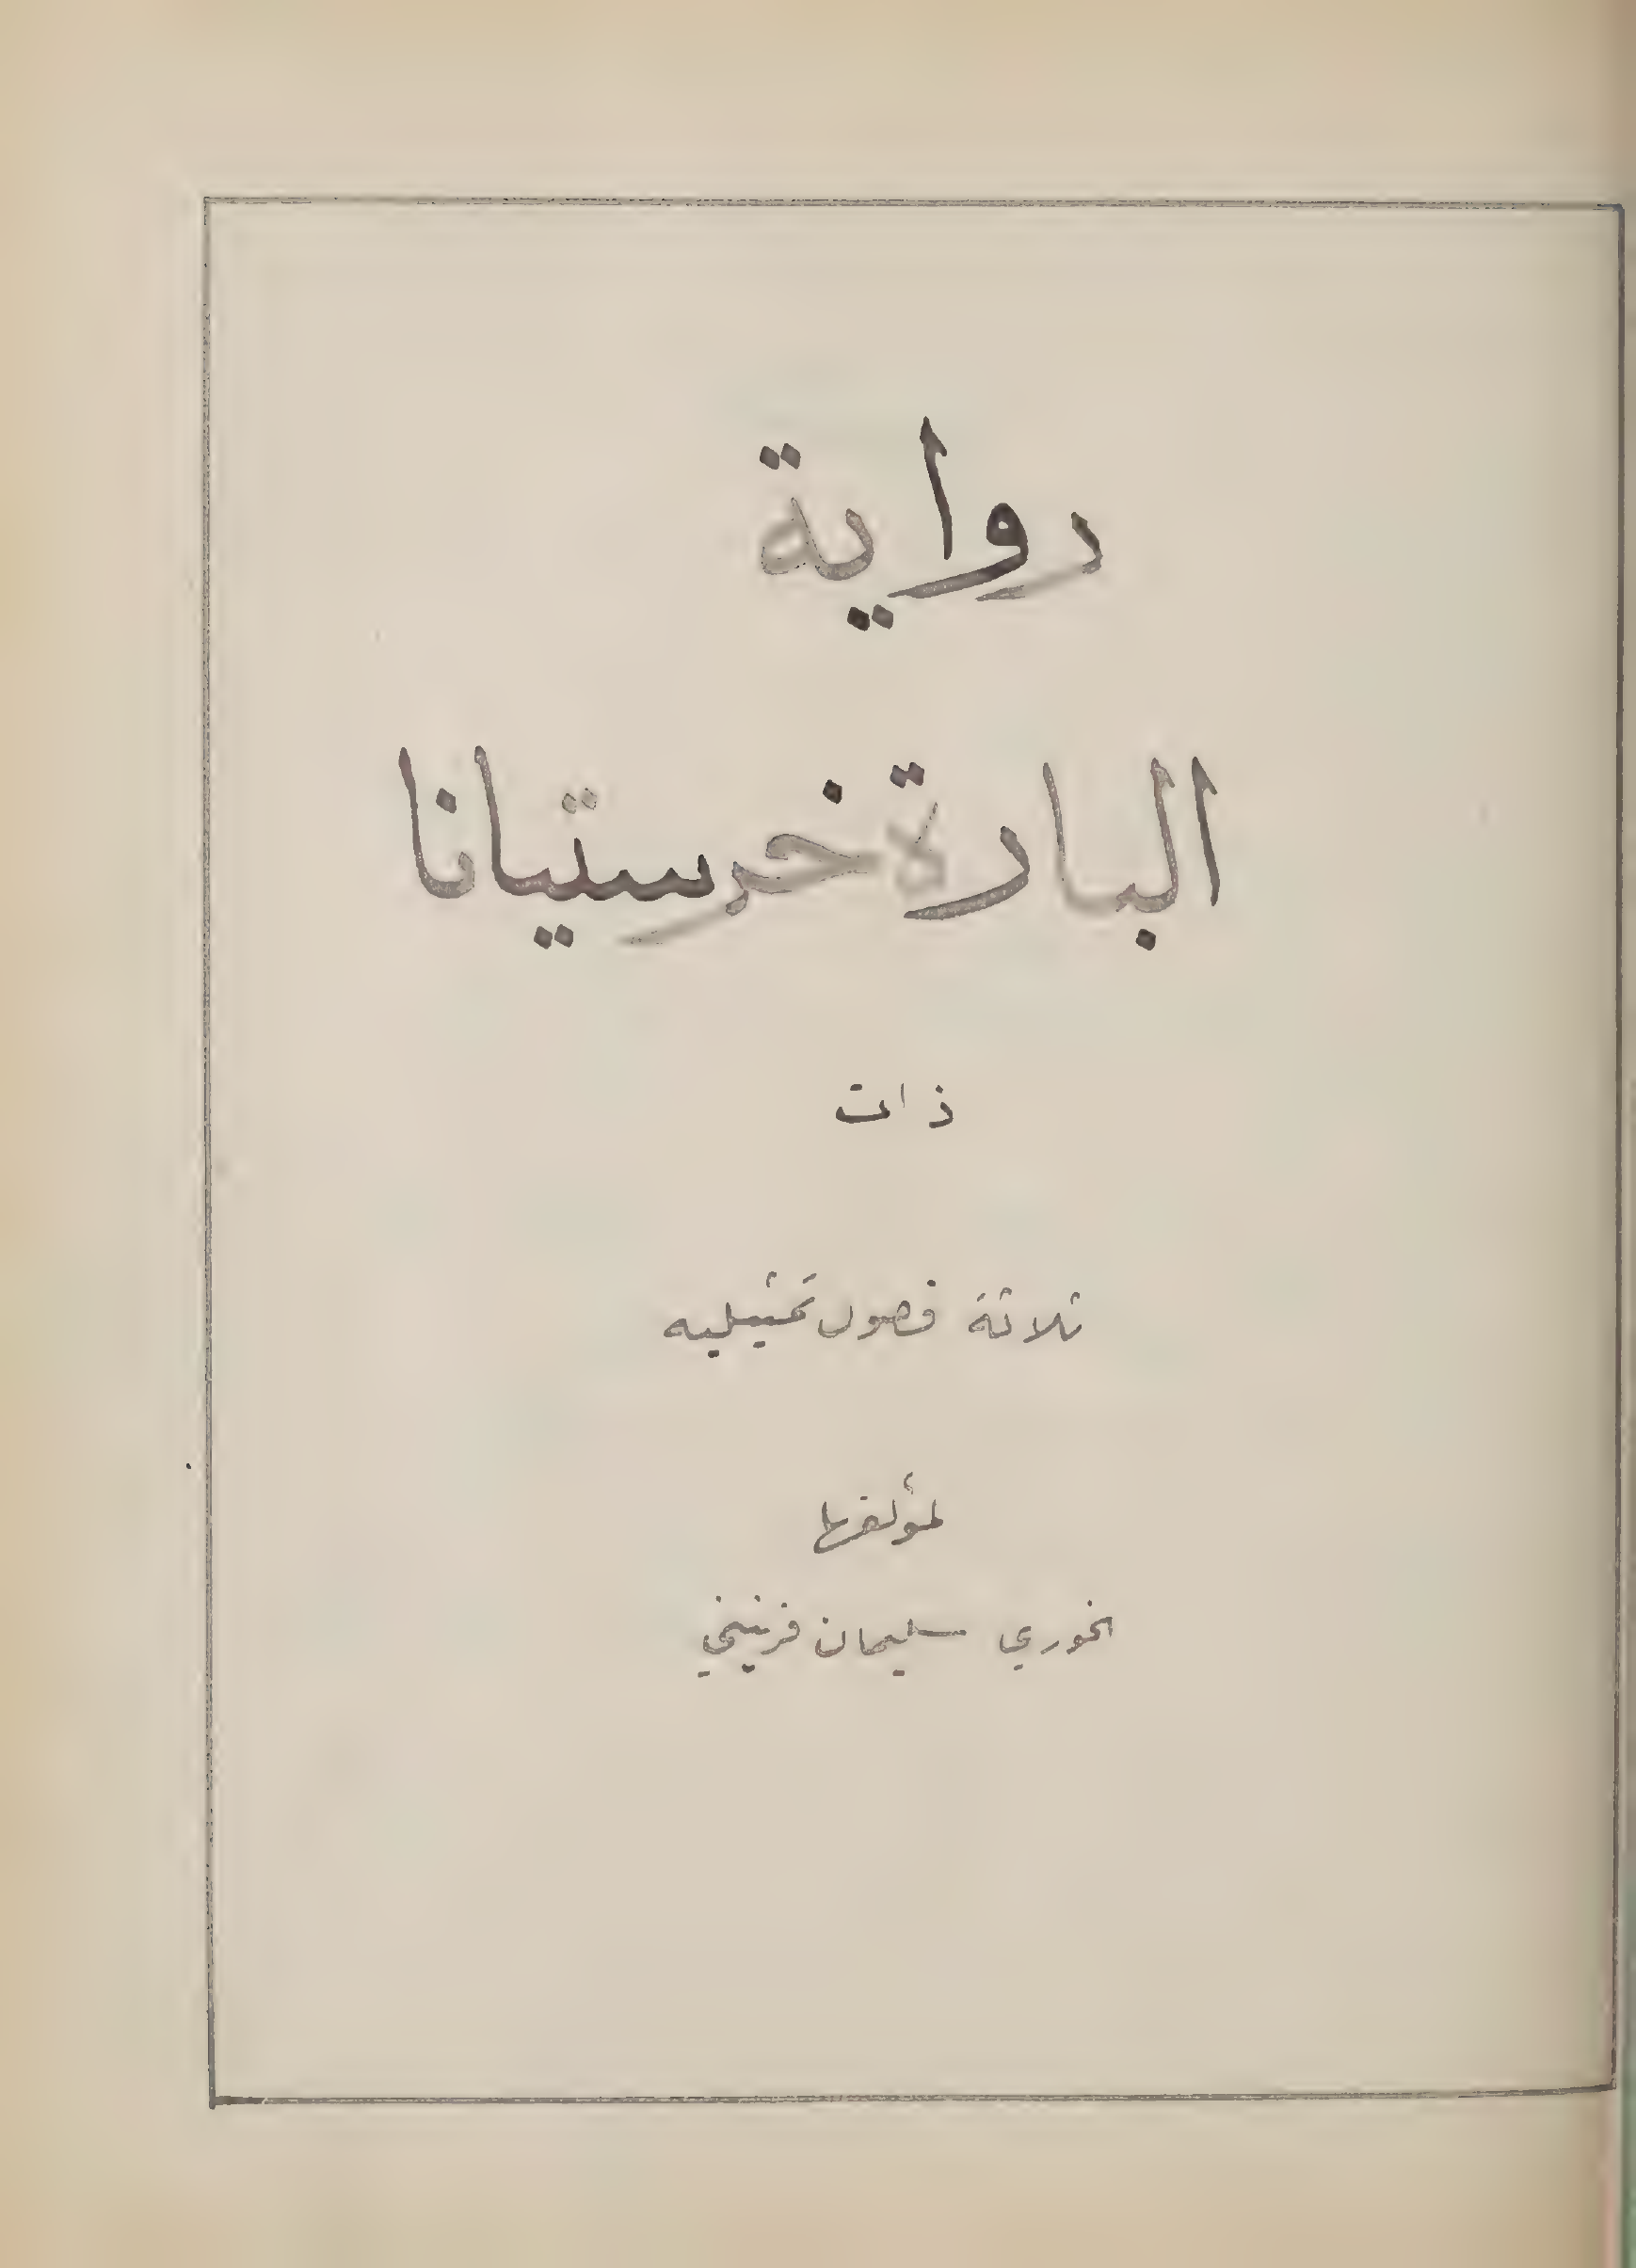 رواية
البارة خرستيانا
ذات
ثلاثة فصول تمثيليه
لمؤلفها
الخوري سليمان فرنيني